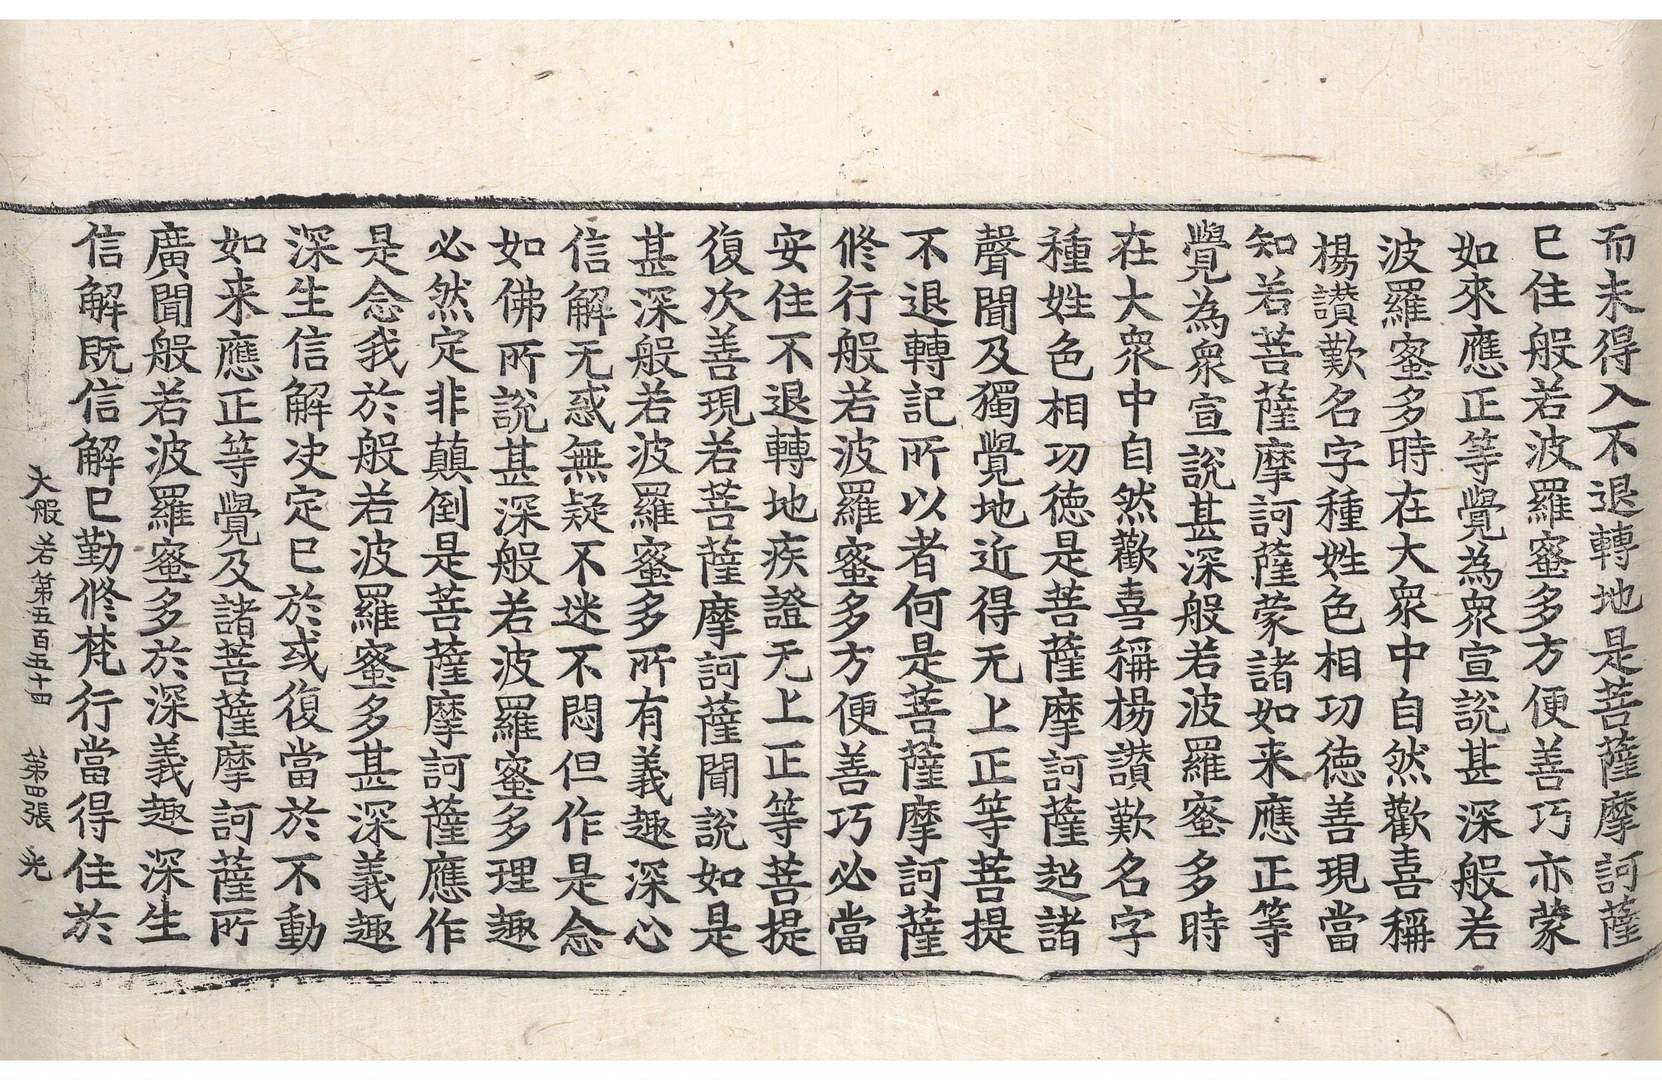 而未得入不退轉地是菩薩摩訶薩
已住般若波羅蜜多方便善巧亦蒙
如來應正等覺為衆宣説甚深般若
波羅蜜多時在大衆中自然歡喜稱
楊讃歎名字種姓色相功徳善現當
知若菩薩摩訶薩蒙諸如来應正等
覺為衆宣説甚深般若波羅蜜多時
在大衆中自然歡喜稱楊讃歎名字
種姓色相功徳是菩薩摩訶薩超諸
聲聞及獨覺地近得无上正等菩提
不退轉記所以者何是菩薩摩訶薩
修行般若波羅蜜多方便善巧必當
安住不退轉地疾證无上正等菩提
復次善現若菩薩摩訶薩聞説如是
甚深般若波羅蜜多所有義趣深心
信解无惑無疑不迷不悶但作是念
如佛所説甚深般若波羅蜜多理趣
必然定非顛倒是菩薩摩訶薩應作
是念我於般若波羅蜜多甚深義趣
深生信解决定已於或復當於不動
如来應正等覺及諸菩薩摩訶薩所
廣聞般若波羅蜜多於深義趣深生
信解既信解已勤修梵行當得住於
大般若第五百五十四 第四張 光